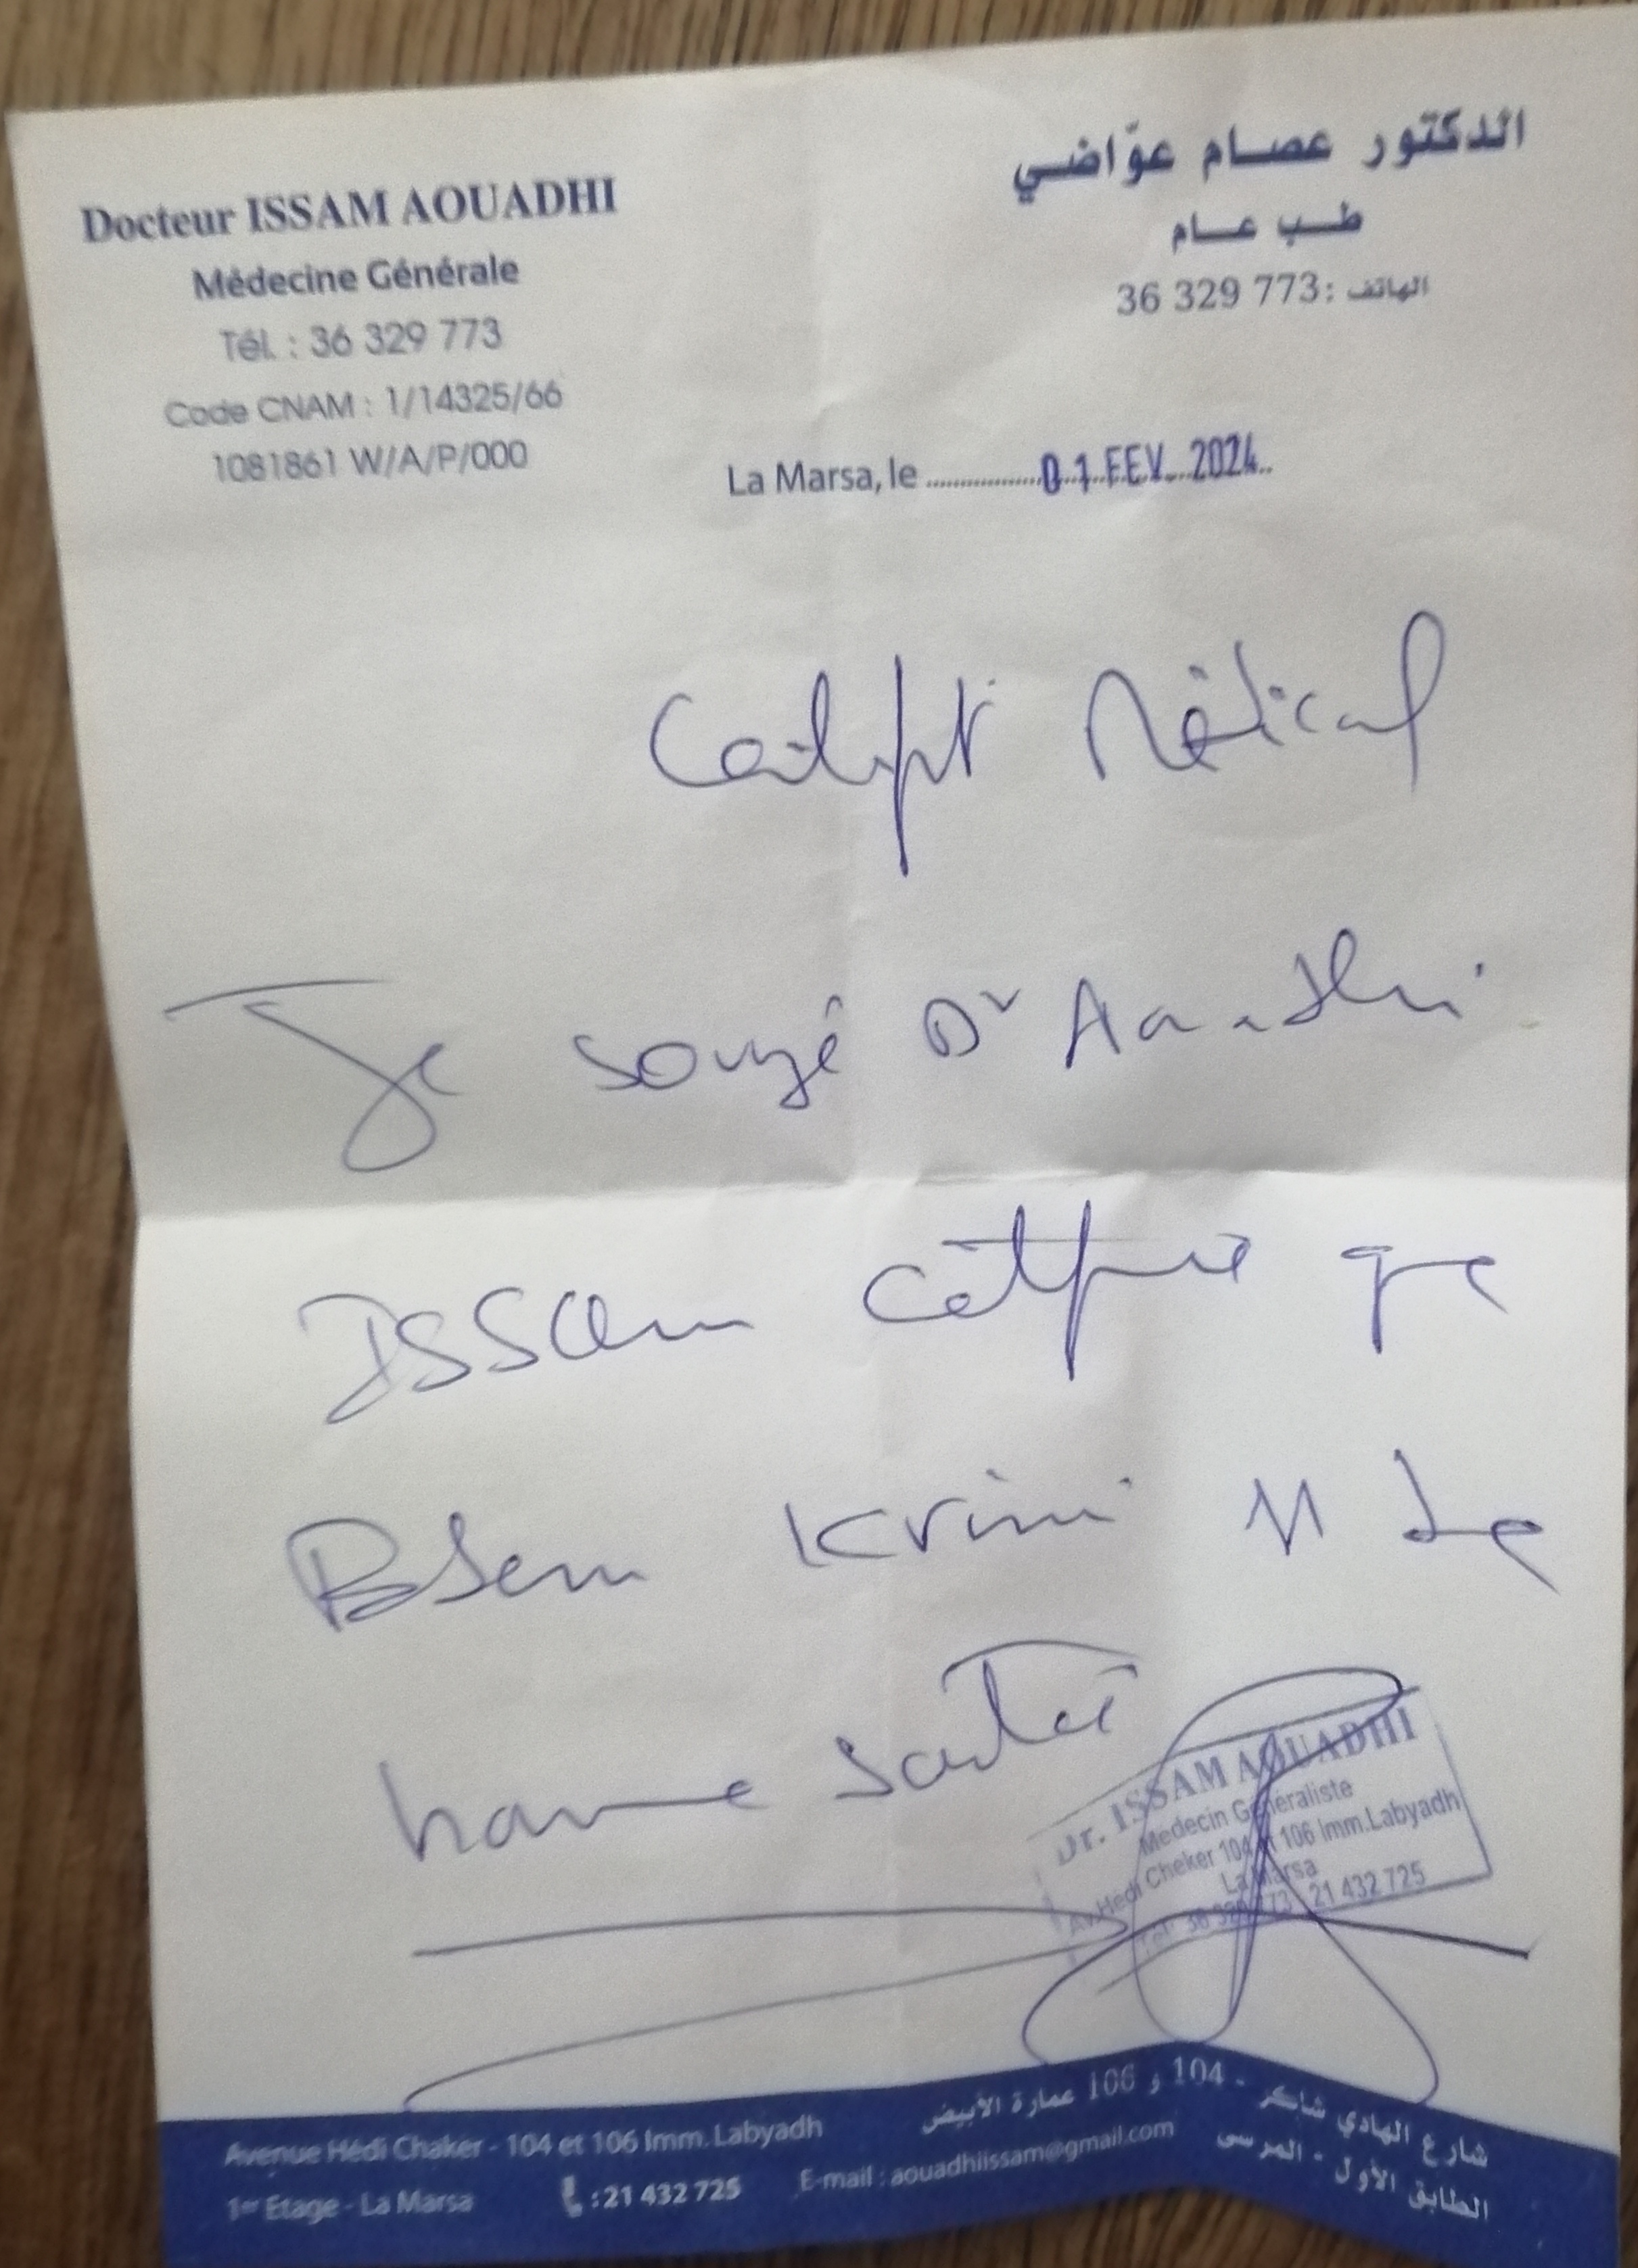 Docteur ISSAM AOUADHI
Médecine Générale
Tél. : 36 329 773
Code CNAM : 1/14325/66
1081861 W/A/P/000
الدكتور عصام عوّاضي
طب عام
الهاتف : 36 329 773
La Marsa, le 01 FEV. 2024
Certificat Médical
Je sousigé Dr Aouadhi
Issam certifie que
Krimi
Dr. ISSAM AOUADHI
Medecin Généraliste
Av.Hedi Cheker 104 et 106 Imm.Labyadh
La Marsa
Tel: 36 329 773 - 21 432 725
Avenue Hédi Chaker - 104 et 106 Imm. Labyadh
1er Etage - La Marsa
: 21 432 725
E-mail : aouadhiissam@gmail.com
شارع الهادي شاكر - 104 و 106 عمارة الأبيض
الطابق الأول - المرسى